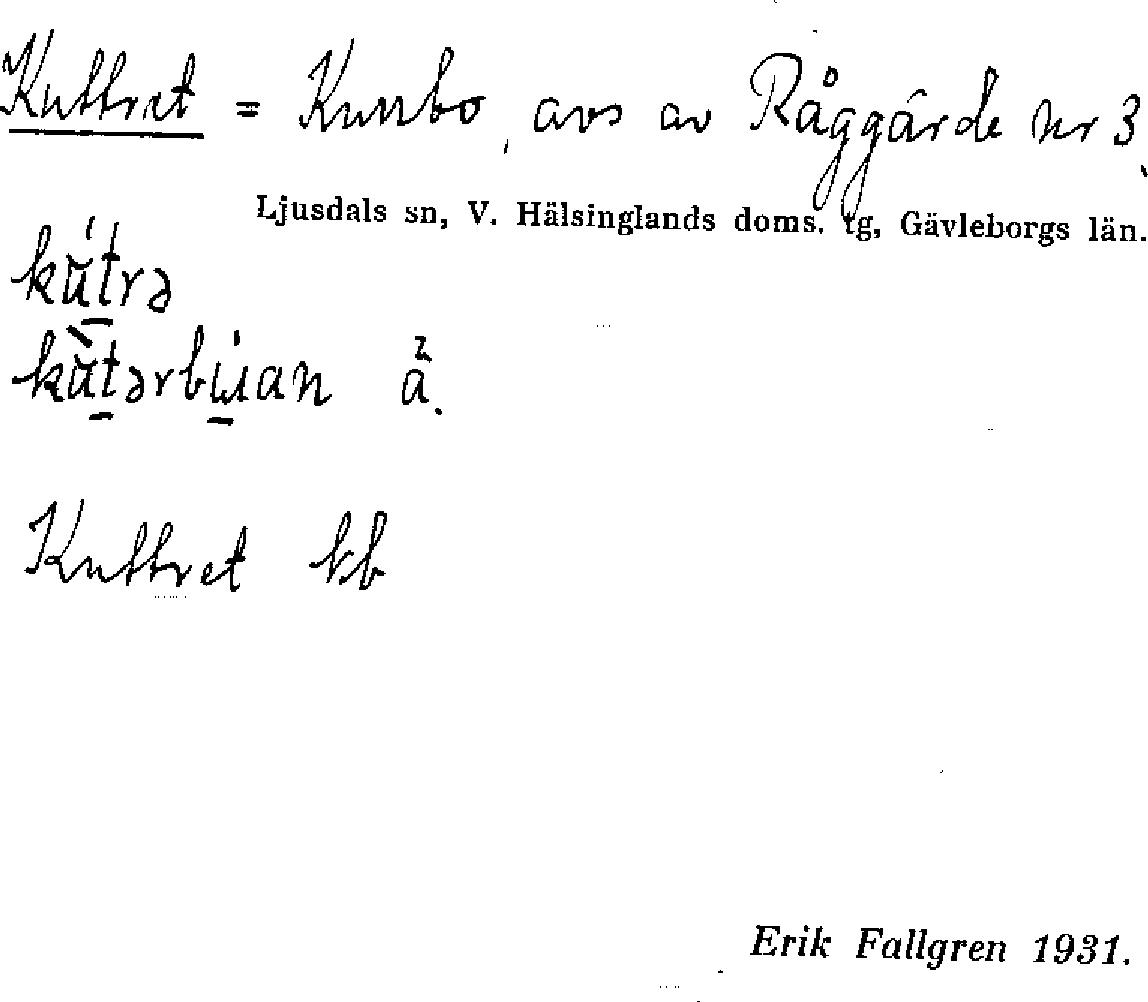 Kuttret = Kunbo, avs av Råggärde nr 3,
Ljusdals sn, V. Hälsinglands doms. tg, Gävleborgs län.
kŭ́trə
kŭ̀tərbɯan å.
Kuttret kb
Erik Fallgren 1931.